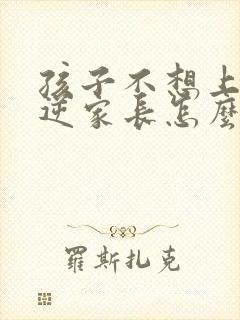 孩子不想上
逆家長怎麼
羅斯扎克